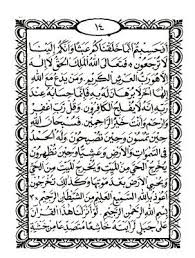 ١٤
اَفَحَسِبْتُمْ اَنَّمَا خَلَقْنَاكُمْ عَبَثًا وَاَنَّكُمْ اِلَيْنَا
لَا تُرْجَعُونَ فَتَعَالَى اللهُ الْمَلِكُ الْحَقُّ لَا اِلٰهَ
اِلَّا هُوَ رَبُّ الْعَرْشِ الْكَرِيمِ وَمَنْ يَدْعُ مَعَ اللهِ
اِلٰهًا اٰخَرَ لَا بُرْهَانَ لَهُ بِهِ فَاِنَّمَا حِسَابُهُ عِنْدَ
رَبِّهِ اِنَّهُ لَا يُفْلِحُ الْكَافِرُونَ وَقُلْ رَبِّ اغْفِرْ
وَارْحَمْ وَاَنْتَ خَيْرُ الرَّاحِمِينَ فَسُبْحَانَ اللهِ
حِينَ تُمْسُونَ وَحِينَ تُصْبِحُونَ وَلَهُ الْحَمْدُ
فِي السَّمٰوَاتِ وَالْاَرْضِ وَعَشِيًّا وَحِينَ تُظْهِرُونَ
يُخْرِجُ الْحَيَّ مِنَ الْمَيِّتِ وَيُخْرِجُ الْمَيِّتَ مِنَ الْحَيِّ
وَيُحْيِي الْاَرْضَ بَعْدَ مَوْتِهَا وَكَذٰلِكَ تُخْرَجُونَ
اَعُوذُ بِاللهِ السَّمِيعِ الْعَلِيمِ مِنَ الشَّيْطَانِ الرَّجِيمِ ٣
بِسْمِ اللهِ الرَّحْمٰنِ الرَّحِيمِ لَوْ اَنْزَلْنَا هٰذَا الْقُرْاٰنَ
عَلٰى جَبَلٍ لَرَاَيْتَهُ خَاشِعًا مُتَصَدِّعًا مِنْ خَشْيَةِ